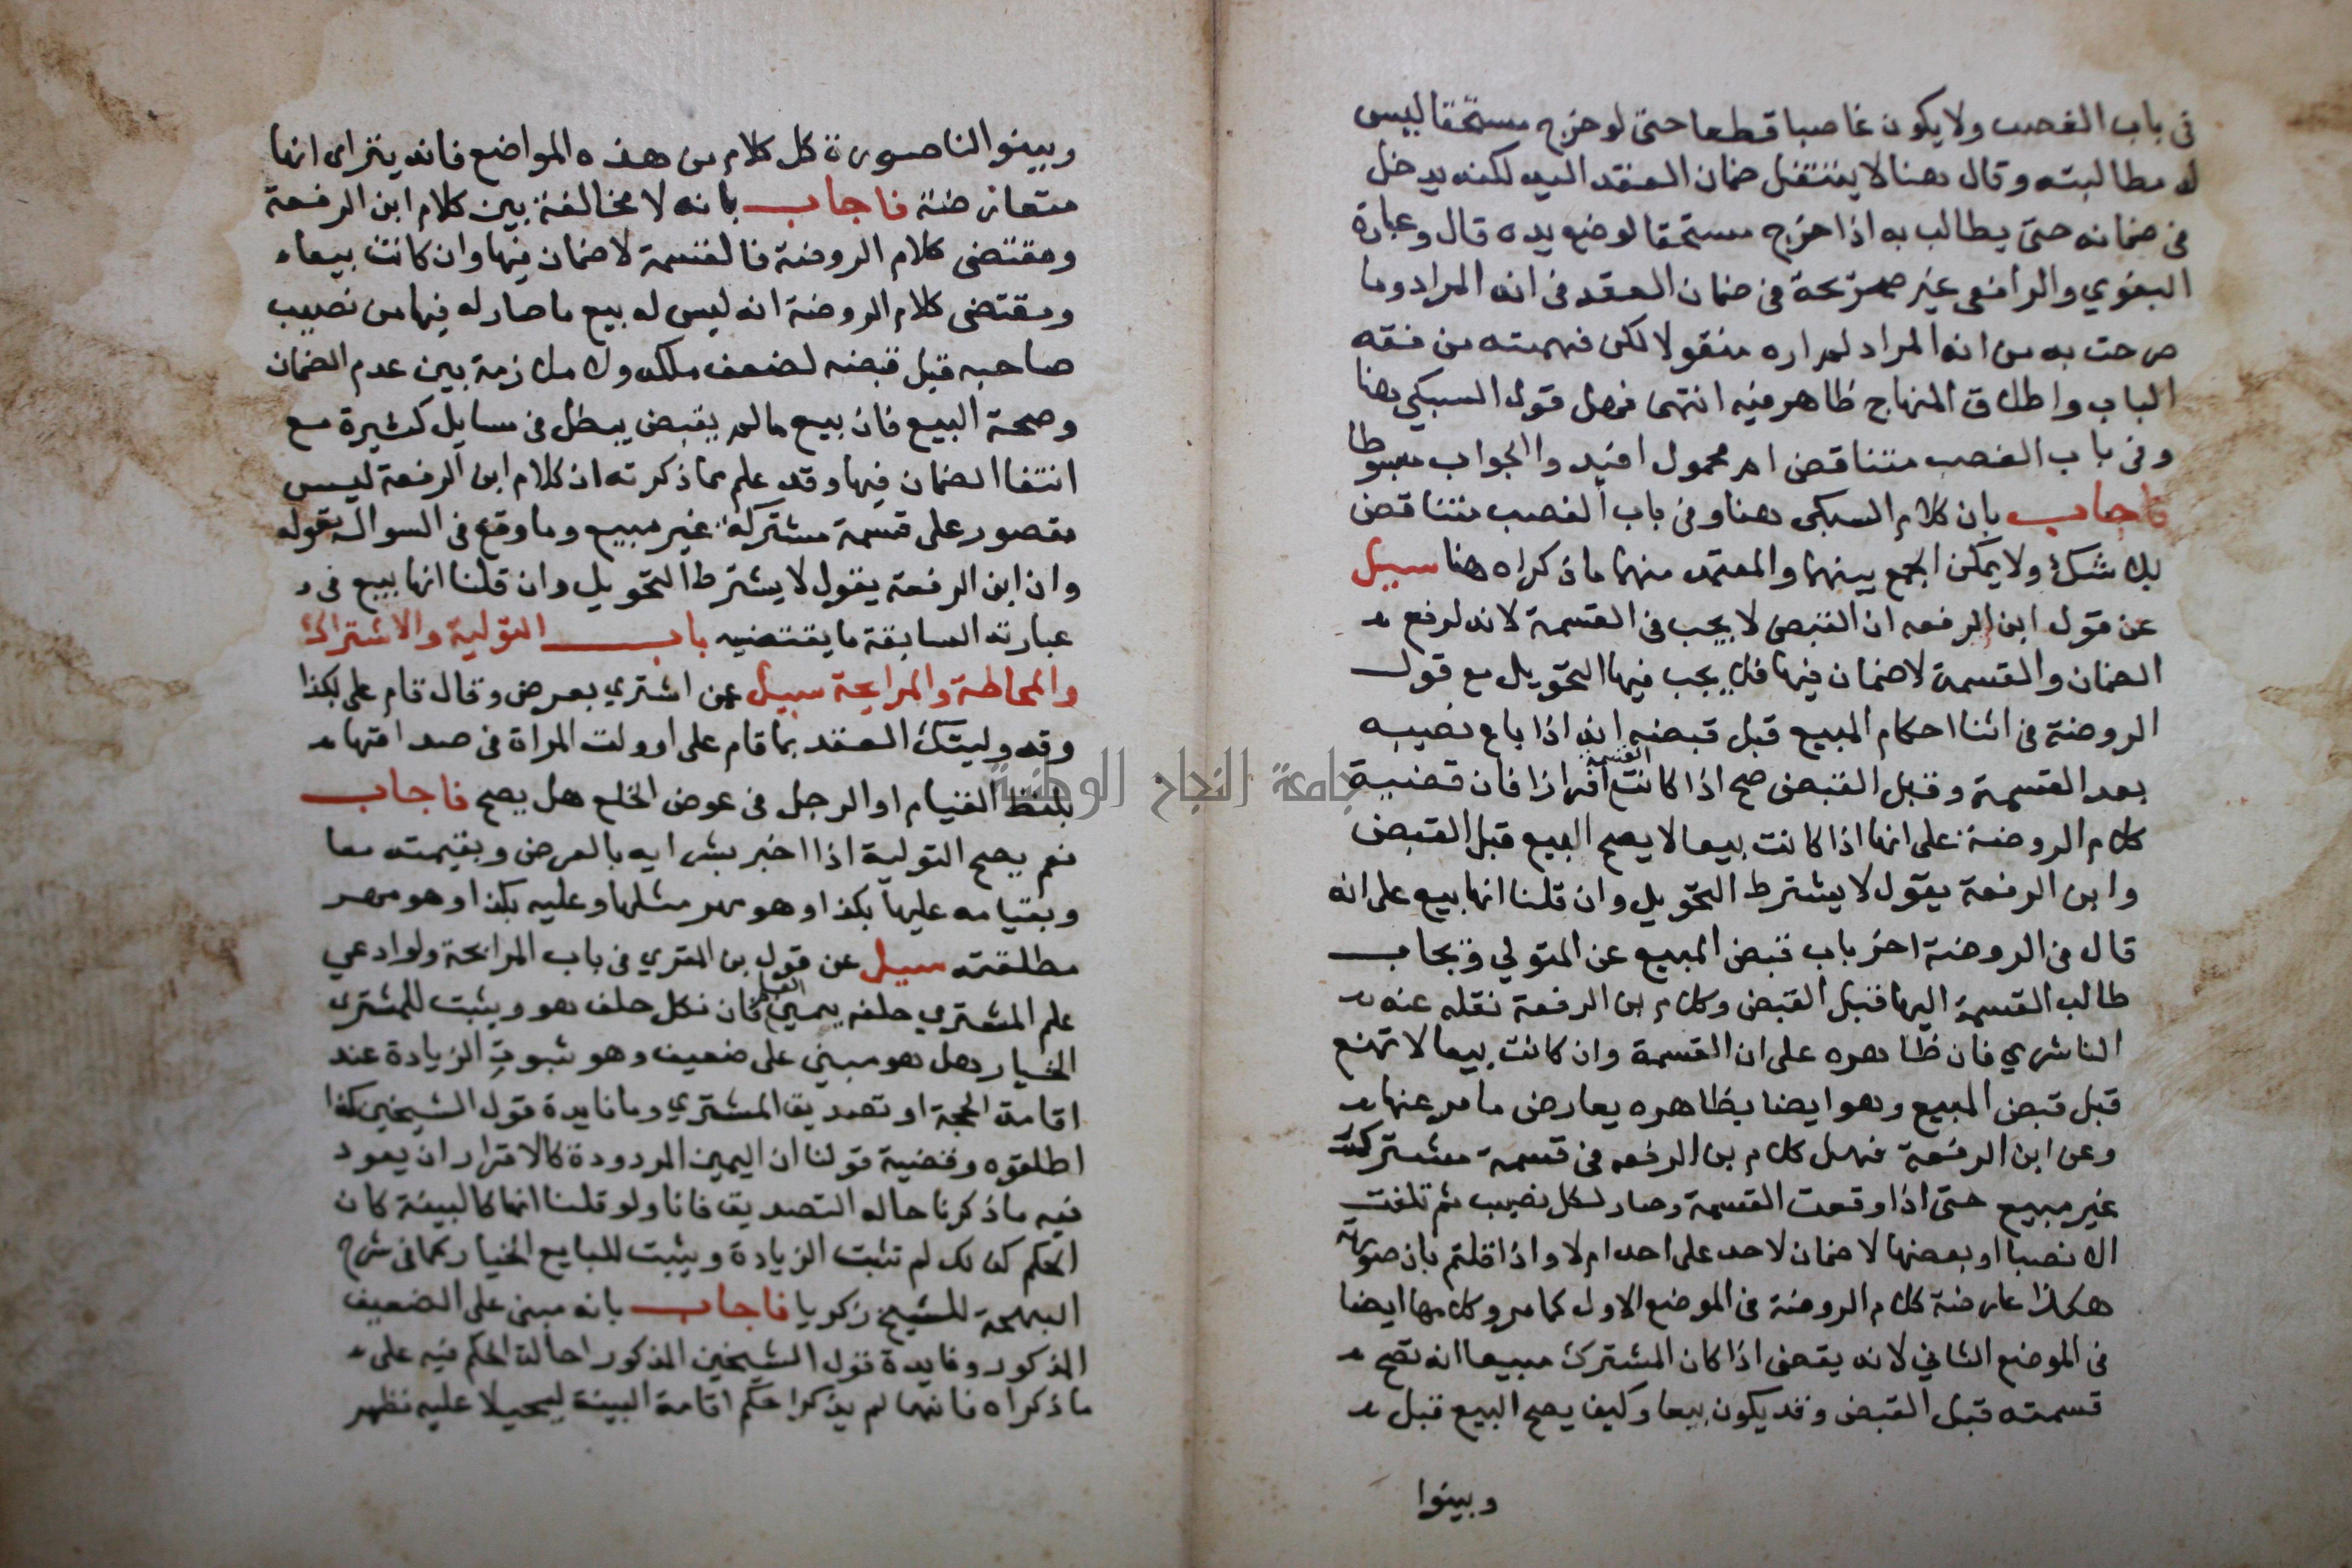 في باب الغصب ولا يكون غاصبا قطعا حتى لو خرج مستحقا ليس
له مطالبته وقال هنا لا ينتقل ضمان العقد اليه لكنه يدخل
في ضمانه حتى يطالب به اذا خرج مستحقا لوضع يده قال وعبارة
البغوي والرافعي غير صريحة في ضمان العقد في انه المراد وما
صرحت به من انه المراد لم اره منقولا لكن فهمته من فقه
الباب واطلاق المنهاج ظاهر فيه انتهى فهل قول السبكي هنا
وفي باب الغصب متناقض ام محمول افيد والجواب مبسوطا
فاجاب بان كلام السبكي هنا وفي باب الغصب متناقض
بلا شك ولا يمكن الجمع بينهما والمعتمد منهما ما ذكراه هنا سيل
عن قول ابن الرفعه ان القبض لا يجب في القسمة لانه لرفع
الضمان والقسمة لا ضمان فيها فلا يجب فيها التحويل مع قول
الروضة في اثنا احكام المبيع قبل قبضه انه اذا باع نصيبه
بعد القسمة وقبل القبض صح اذا كانت القسمة افرازا فان قضية
كلام الروضة على انها اذا كانت بيعا لا يصح البيع قبل القبض
وابن الرفعة يقول لا يشترط التحويل وان قلنا انها بيع على انه
قال في الروضة اخر باب قبض المبيع عن المتولي ويجاب
طالب القسمة اليها قبل القبض وكلام بن الرفعة نقله عنه
الناشري فان ظاهره على ان القسمة وان كانت بيعا لا تمنع
قبل قبض المبيع وهو ايضا بظاهره يعارض ما مر عنها
وعن ابن الرفعة فهل كلام بن الرفعه في قسمة مشتركة
غير مبيع حتى اذا وقعت القسمة وصار لكل نصيب ثم تلفت
الانصبا او بعضها لا ضمان لاحد على احد ام لا واذا قلتم بان صورته
هكذا عارضة كلام الروضة في الموضع الاول كما مر وكلامها ايضا
في الموضع الثاني لانه يقضى اذا كان المشترك مبيعا انه تصح
قسمته قبل القبض وقد يكون بيعا وكيف يصح البيع قبل
وبينوا
وبينوا لنا صورة كل كلام من هذه المواضع فانه يتراى انها
متعارضة فاجاب بانه لا مخالفة بين كلام ابن الرفعة
ومقتضى كلام الروضة فالقسمة لا ضمان فيها وان كانت بيعا
ومقتضى كلام الروضة انه ليس له بيع ما صار له فيها من نصيب
صاحبه قبل قبضه لضعف ملكه ولا ملازمة بين عدم الضمان
وصحة البيع فان بيع ما لم يقبض يبطل في مسايل كثيرة مع
انتفا الضمان فيها وقد علم مما ذكرته ان كلام ابن الرفعة ليس
مقصور على قسمة مشتركة غير مبيع وما وقع في السوال بقوله
وان ابن الرفعة يقول لا يشترط التحويل وان قلنا انها بيع في
عبارته السابقة ما يقتضيه باب التولية والاشتراك
والمحاطة والمرابحة سيل عمن اشترى بعرض وقال قام علي بكذا
وقد وليتك العقد بما قام علي او ولت المراة في صداقها
بلفظ القيام او الرجل في عوض الخلع هل يصح فاجاب
نعم يصح التولية اذا اخبر بشرايه بالعرض وبقيمته معا
وبقيامه عليها بكذا وهو مهر مثلها وعليه بكذا وهو مهر
مطلقته سيل عن قول بن المقري في باب المرابحة ولو ادعي
علم المشتري حلفه يمين العلم فان نكل حلف هو ويثبت للمشتري
الخيار هل هو مبني على ضعيف وهو ثبوت الزيادة عند
اقامة الحجة او تصديق المشتري وما فايدة قول الشيخين كذا
اطلقوه وقضية قولنا ان اليمين المردودة كالاقرار ان يعود
فيه ما ذكرنا حالة التصديق فانا ولو قلنا انها كالبينة كان
الحكم كذلك لم تثبت الزيادة ويثبت للبايع الخيار كما في شرح
البهجة للشيخ زكريا فاجاب بانه مبني على الضعيف
المذكور وفايدة قول الشيخين المذكور احالة الحكم فيه على
ما ذكراه فانهما لم يذكرا حكم اقامة البينة ليحيلا عليه نظهر
جامعة النجاح الوطنية